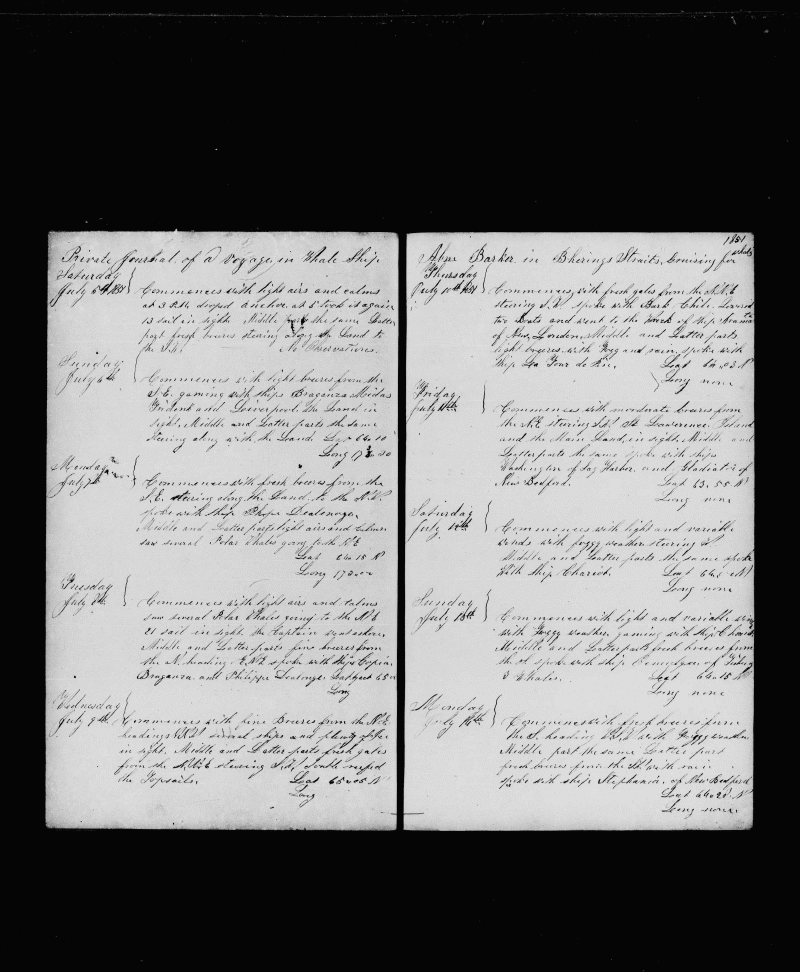 Private Journal of a Voyage, in Whale Ship
Saturday
July 5th 1851
Commences with light airs and calms
at 3 P.M. droped anchor at 5 took it again
13 sail in sight Middle part the same Latter
part fresh breeses stering along up Land to
the No Observations.
Sunday
July 6th
Commences with light breeses from the
S.E. gaming with ships Braganza Midas
Trident and Liverpool the Land in
sight, Middle and Latter parts the same
stering along with the Land Lat 64.10
Long
Monday
July 7th
Commences with fresh breeses from the
S.E. stering along the Land to the N.W.
spoke with ship
Middle and Latter parts light airs and calms
saw several Polar Whales going to the N.E
Lat 64.15 N
Long
Tuesday
July 8th
Commences with light airs and calms
saw several Polar Whales going to the N.E
21 sail in sight the Captain
Middle and Latter parts fine breeses from
the N. heading E.N.E spoke with ships Copia,
Braganza and
Long
Wednesday
July 9th
Commences with fine Breeses from the N.E
heading several ships and plenty of Ice
in sight, Middle and Latter parts fresh gales
from the N.N.E stering South reefed
the Topsails. Lat 65.05 N
Long
1851
Abm Barker in Bherings Straits, Cruising for
whales
Thursday
July 10th 1851
Commences, with fresh gales from the N.N.E
stering S.W. spoke with Bark Chili. Lowered
two Boats and went to the Wreck of ship
of New London Middle and Latter parts
light breeses, with Fogg and rain, spoke with
Ship La Tour du Pin.
Long none
Friday
July 11th
Commences with moderate breeses from
the N.E stering St Lawerence Island
and the Main Land, in sight, Middle and
Latter parts the same spoke with ships
Washington of Sag Harbor, and Gladiator of
New Bedford. Lat 63.55 N
Long none
Saturday
July 12th
Commences with light and variable
winds with foggy weather stering
Middle and Latter parts the same spoke
With Ship Chariot.
Long none
Sunday
July 13th
Commences with light and variable winds
with Foggy weather, gaming with ship Chariot
Middle and Latter part fresh breeses from
the spoke with ship of
3 Whales. Lat 64.15 N
Long none
Monday
July 14th
Commences with fresh breeses from
the S. heading with Foggy weather
Middle part the same Latter part
fresh breeses from the with rain
spoke with ship Stephania, of New Bedford
Lat 64.20 N
Long none